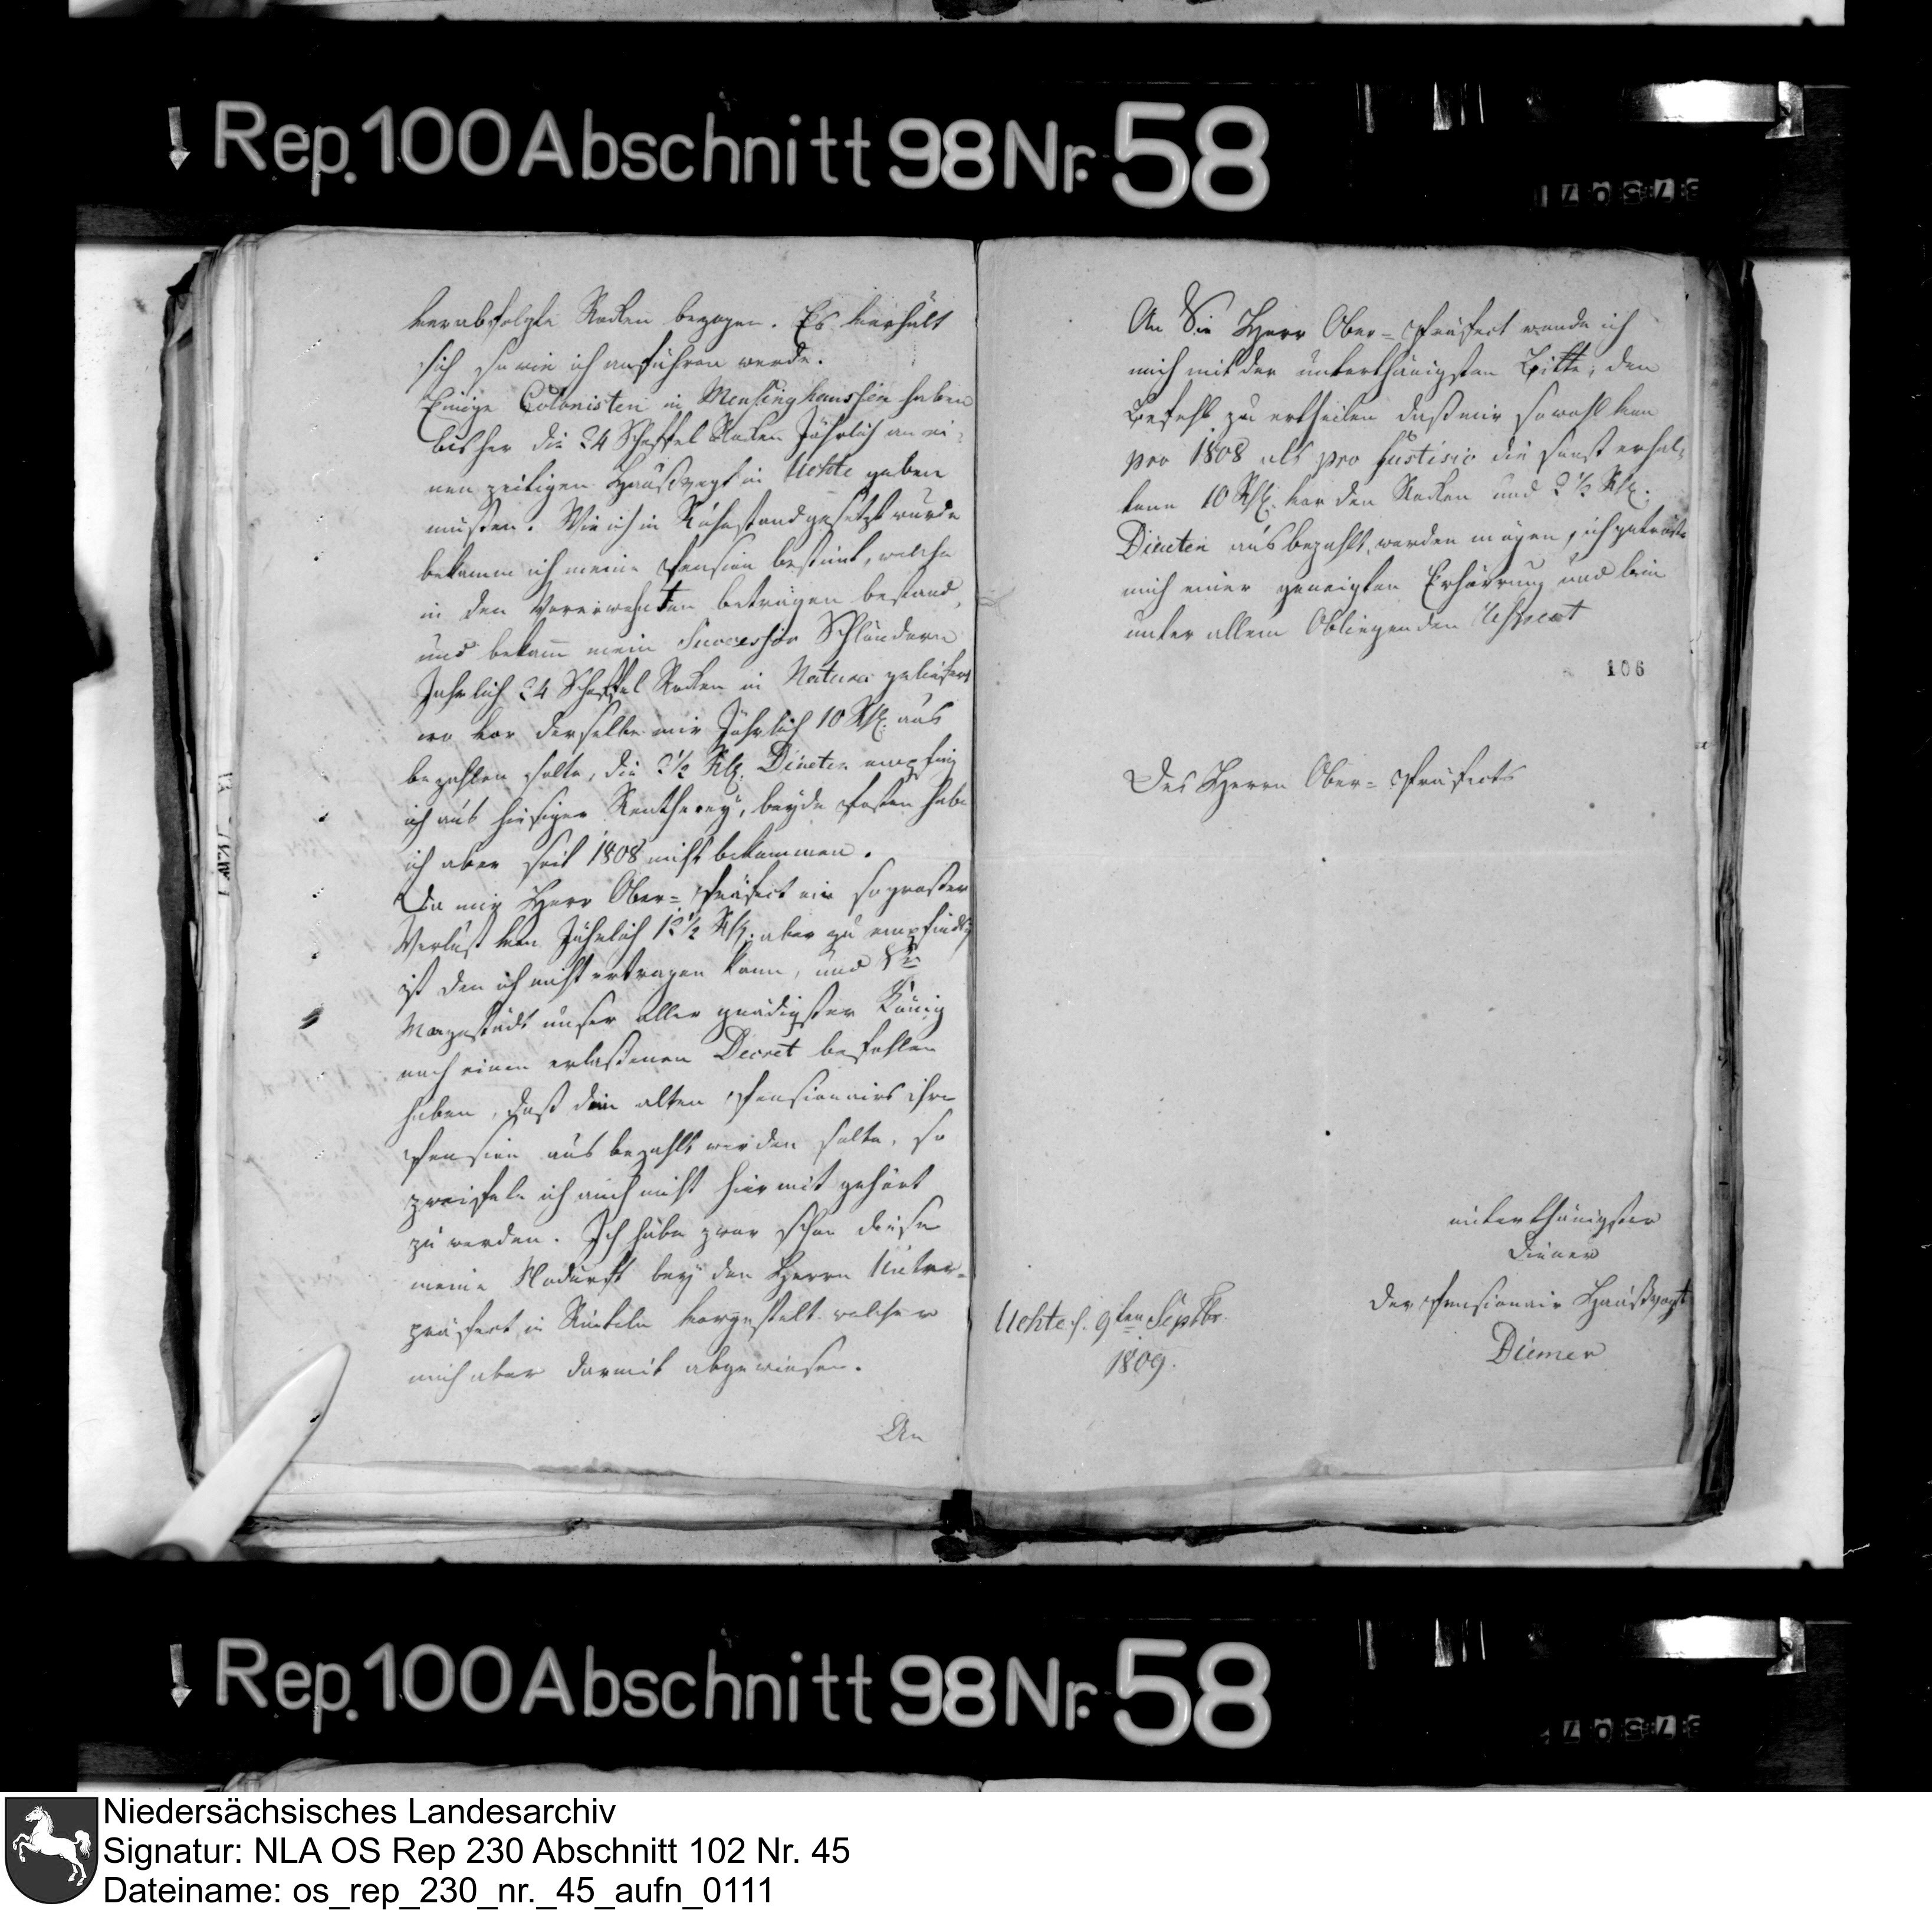 Rep. 100 Abschnitt 98 Nr. 58
verabfolgte Rocken bezogen. Es verhält
sich so wie ich anführen werde.
Einige Colonisten in Mensinghaussen haben
bisher die 24 Scheffel Rocken Jährlich an ei-
nen zeitigen Haußvogt in Uchte geben
müßen. Wie ich in Ruhestand gesetzt wurde
bekamm ich meine Pension bestimt, welche
in den Vorerwehnten betragen bestand,
und bekam mein Successor Schlündern
Jahrlich 24 Scheffel Rocken in Natura geliefert
wo vor derselbe mir Jährlich 10 Rtlr. aus
bezahlen solte, die 2½ Rtlr. Diaeten empfing
ich aus hiesiger Rentherey, beyde Posten habe
ich aber seit 1808 nicht bekommen.
Da mir Herr Ober-Präfect ein so großer
Verlust von Jährlich 12½ Rtlr. aber zu empfindlich
ist den ich nicht ertragen kann, und Sr
Mayestädt unser aller gnädigster König
nach einen erlaßenen Decret befohlen
haben, daß die alten Pensionairs ihre
Pension ausbezahlt werden solte, so
zweifele ich auch nicht hiermit gehört
zu werden. Ich habe zwar schon diese
meine Nodurft bey den Herrn Unter-
präfect in Rinteln vorgestelt welcher
mich aber darmit abgewiesen.
An
An Sie Herr Ober-Präfect wende ich
mich mit der unterthänigsten Bitte, den
Befehl zu ertheilen daß mir sowohl von
pro 1808 als pro die sonst erhal-
tene 10 Rtlr. vor den Rocken und 2½ Rtlr.
Diaeten ausbezahlt werden mögen, ich getröste
mich einer geneigten Erhörrung und bin
unter allem Obliegenden Respect
106
Des Herrn Ober-Präfects
unterthänigster
Diener
der Pensionair Haußvogt
Diemer
Uchte d. 9ten Septbr.
1809.
Rep. 100 Abschnitt 98 Nr. 58
Niedersächsisches Landesarchiv
Signatur: NLA OS Rep 230 Abschnitt 102 Nr. 45
Dateiname: os_rep_230_nr._45_aufn_0111